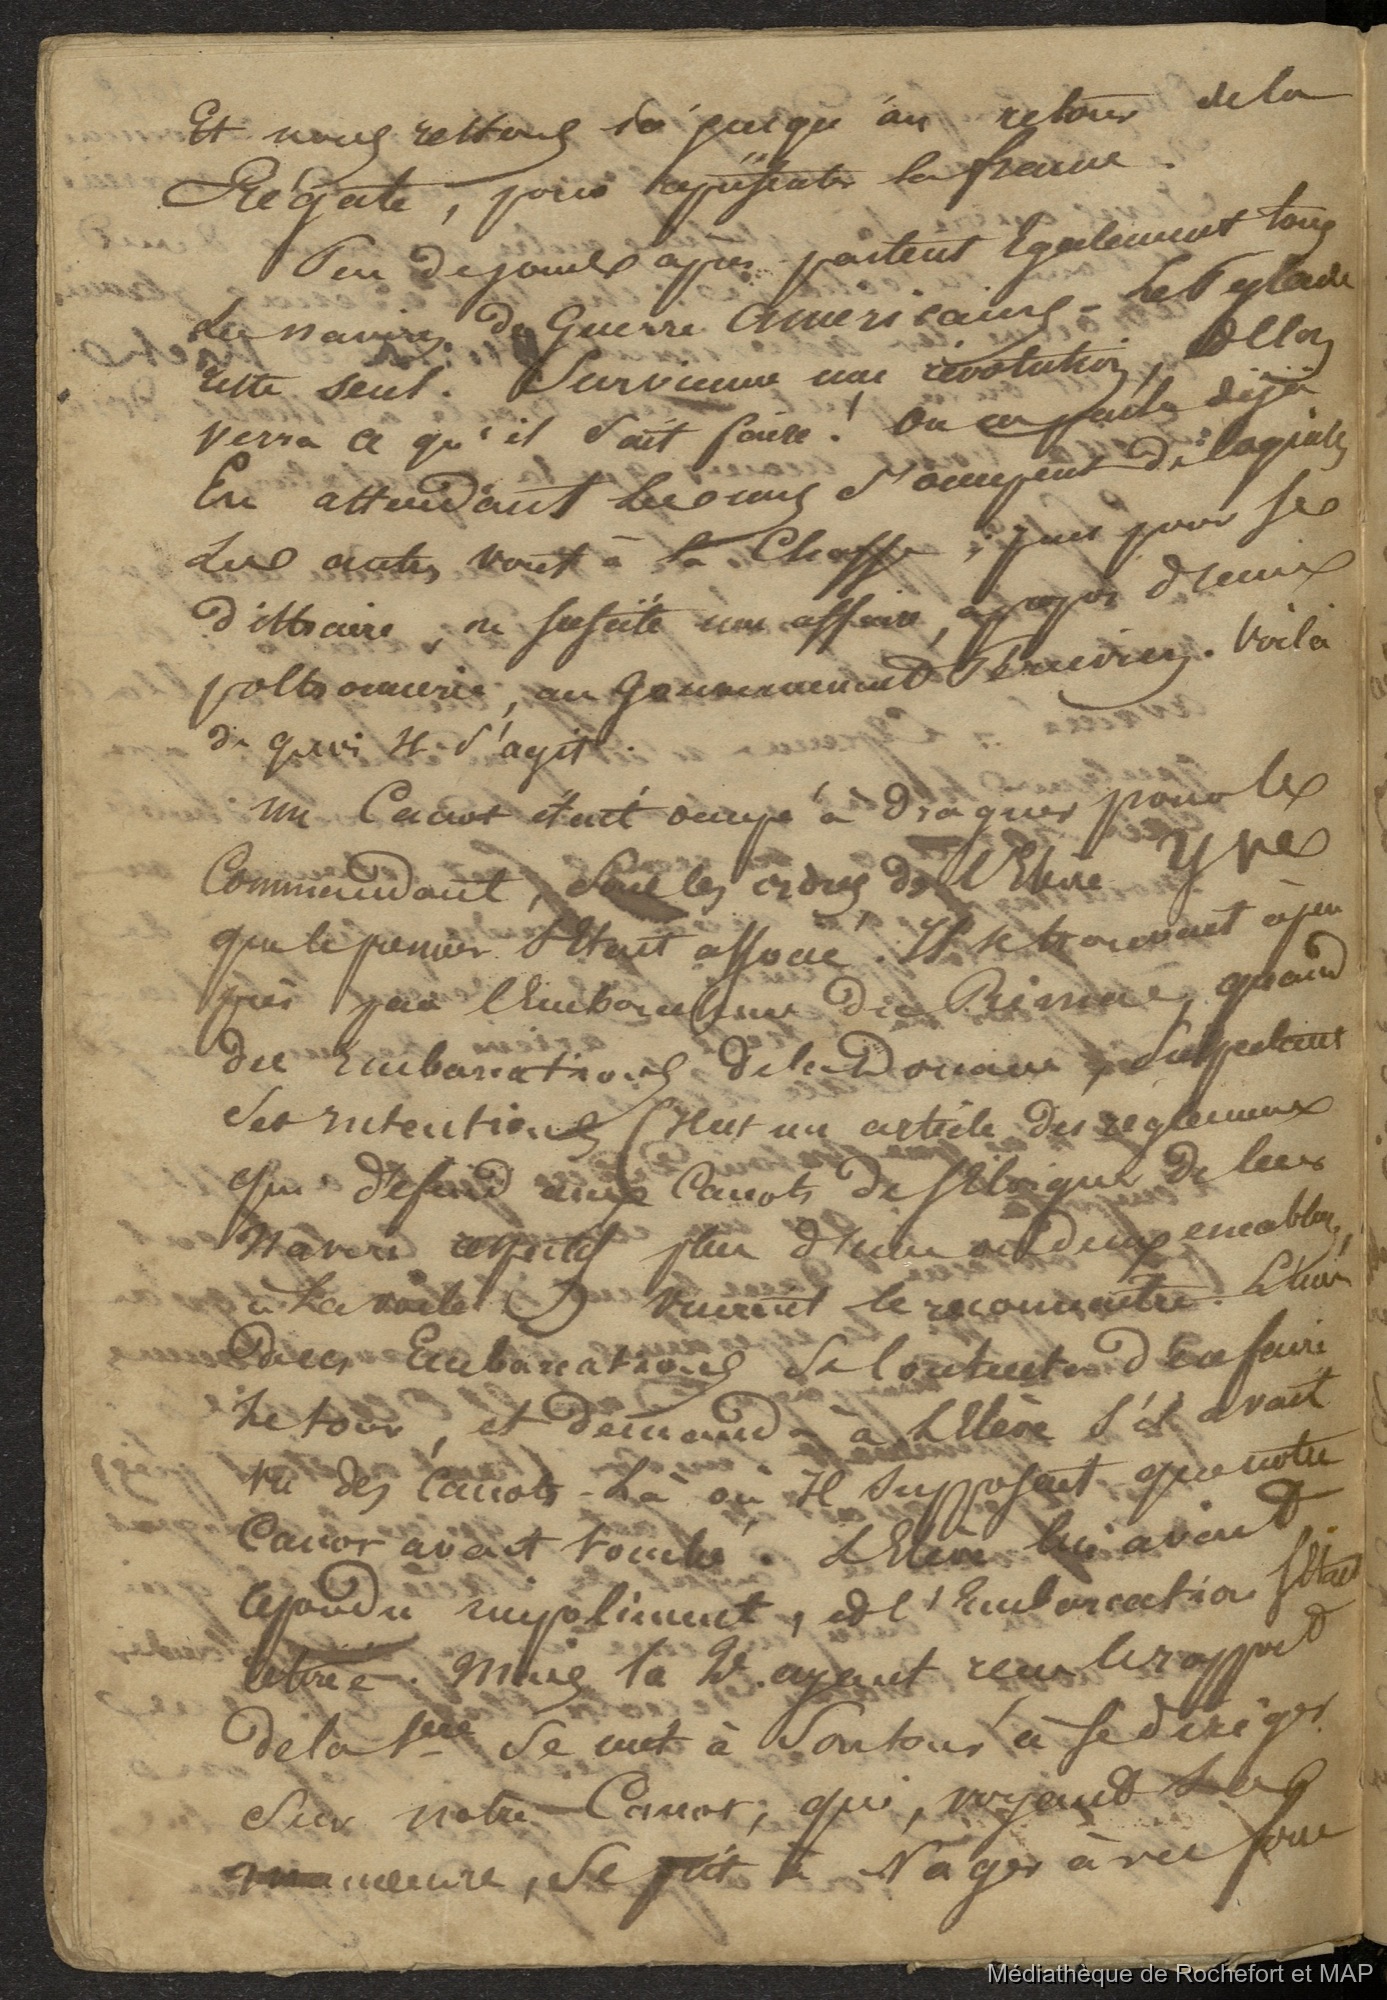 Et nous restons là jusqu'au retour de la
Frégate, pour représenter la france.
Peu de jours après partent Egalement tous
Les navires de Guerre Americains - Le
reste seul. Survienne une révolution,
verra ce qu'il sait faire! On en parle déjà
En attendant les uns s'occupent
Les autres vont à la Chasse; puis pour se
distraire, on suscite une affaire, apropos d'une
poltronnerie, au Gouvernement Péruvien. Voilà
de quoi Il s'agit.
un Canot était occupé à draguer pour le
Commandant, Sous les ordres de l'Elève Yves
que le premier s'Etait associé. Il se trouvait àpeu
près par l'Embouchure du Rimac, quand
des Embarcations de la Douane, Suspectant
Ses intentions (Il est un article des reglemens
qui défend aux Canots de s'Eloigner de leurs
Navires respectifs plus d'une ou deux encablures,
à la voile) vinrent le reconnaître. L'une
Des Embarcations se contenta d'en faire
le tour, et demanda à L'Elève S'il avait
vu des Canots - Là où Il supposait que notre
Canot avait touché. L'Elève lui avait
repondu impoliment, et l'Embarcation s'était
retirée. Mais la 2e. ayant reçu le rapport
de la 1ere Se mit à Son tour à se diriger
Sur notre Canot, qui, voyant Sa
manoeuvre, Se prit à Nager avec force